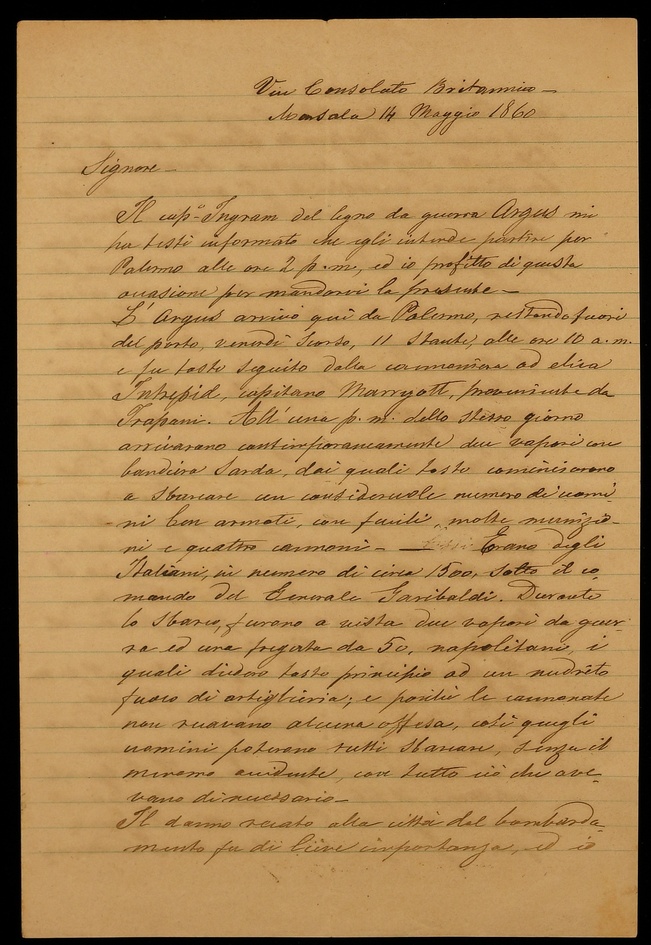 Vice Consolato Britannico —
Marsala 14 Maggio 1860
Signore —
Il cap.º Ingram del legno da guerra Argus mi
ha testè informato che egli intende partire per
Palermo alle ore 2 p.m, ed io profitto di questa
occasione per mandarvi la presente —
L'Argus arrivò qui da Palermo, restando fuori
del porto, venerdì scorso, 11 stante, alle ore 10 a.m.
e fu tosto seguito dalla cannoniera ad elica
Intrepid, capitano Marryott, proveniente da
Trapani. All'una p.m. dello stesso giorno
arrivarono contemporaneamente due vapori con
bandiera Sarda, dai quali tosto cominciarono
a sbarcare un considerevole numero di uomi-
ni ben armati, con fucili, molte munizio-
ni e quattro cannoni — Erano degli
Italiani, in numero di circa 1500, sotto il co-
mando del Generale Garibaldi. Durante
lo sbarco, furono a vista due vapori da guer-
ra ed una fregata da 50, napolitani, i
quali diedero tosto principio ad un nudrito
fuoco di artiglieria; e poiché le cannonate
non recavano alcuna offesa, così quegli
uomini poterono tutti sbarcare, senza il
menomo accidente, con tutto ciò che ave-
vano di necessario —
Il danno recato alla città dal bombarda-
mento fu di lieve importanza, ed io